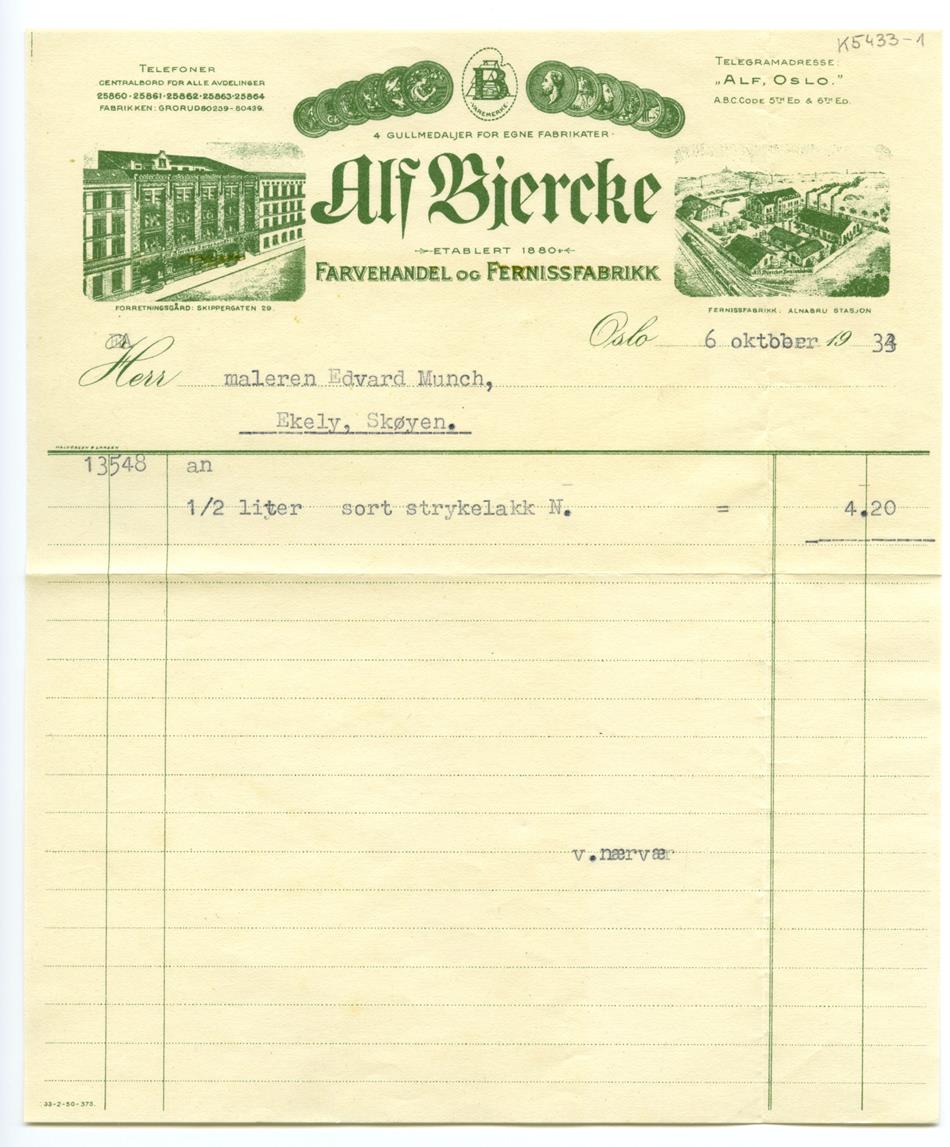 K5433-1
TELEFONER
CENTRALBORD FOR ALLE AVDELINGER
25860-25861-25862-25863-25864
FABRIKKEN: GRORUD 80239-80439.
VAREMERKE
TELEGRAMADRESSE:
„ALF, OSLO."
A.B.C. CODE 5TH ED & 6TH ED.
4 GULLMEDALJER FOR EGNE FABRIKATER
Alf Bjercke
ETABLERT 1880
FARVEHANDEL OG FERNISSFABRIKK
FORRETNINGSGÅRD: SKIPPERGATEN 29.
FERNISSFABRIKK: ALNABRU STASJON
Oslo 6 oktober 19 33
Herr maleren Edvard Munch,
Ekely, Skøyen.
HALVORSEN & LARSEN
13548 an
1/2 liter sort strykelakk N. = 4.20
v.nærvær
33-2-50-375.